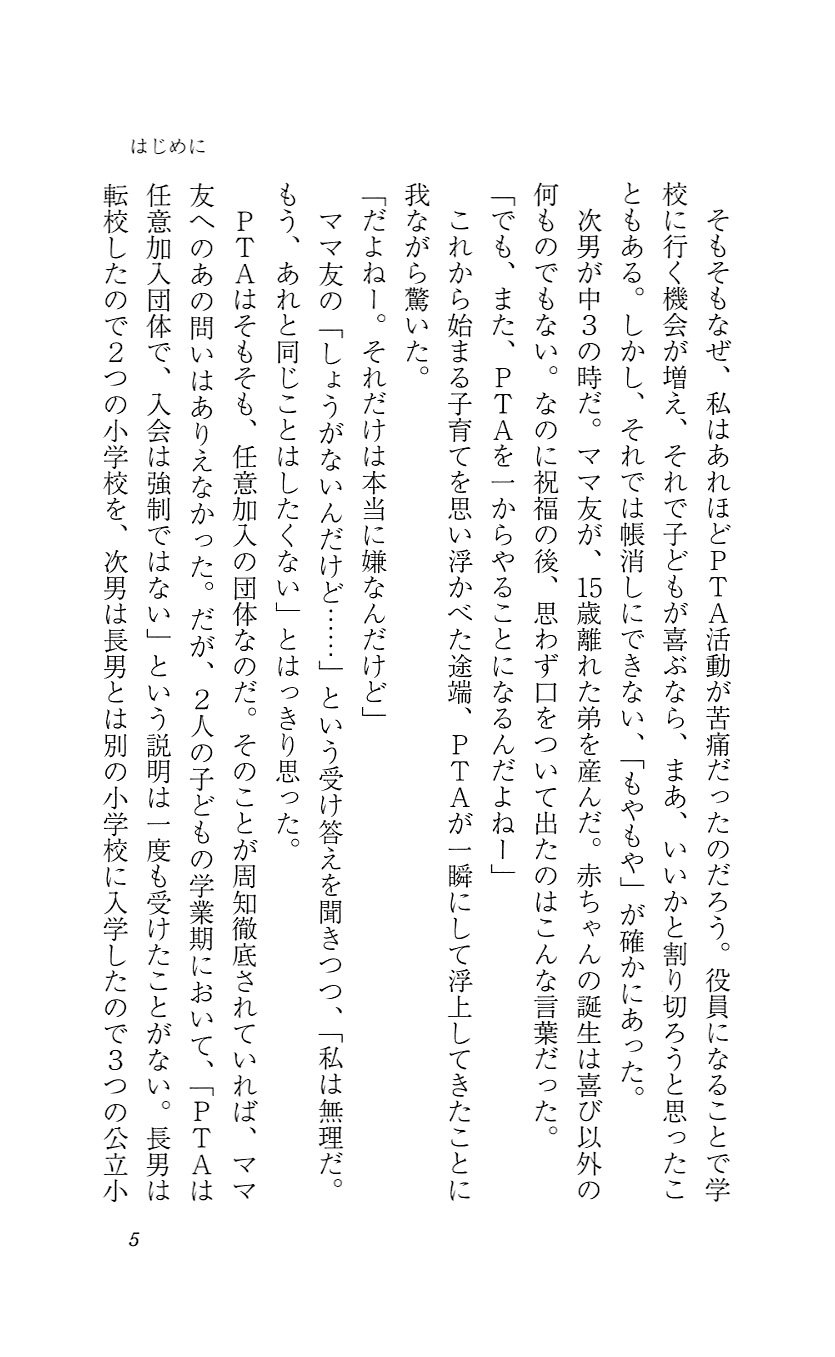 はじめに
そもそもなぜ、私はあれほどＰＴＡ活動が苦痛だったのだろう。役員になることで学
校に行く機会が増え、それで子どもが喜ぶなら、まあ、いいかと割り切ろうと思ったこ
ともある。しかし、それでは帳消しにできない、「もやもや」が確かにあった。
次男が中３の時だ。ママ友が、15歳離れた弟を産んだ。赤ちゃんの誕生は喜び以外の
何ものでもない。なのに祝福の後、思わず口をついて出たのはこんな言葉だった。
「でも、また、ＰＴＡを一からやることになるんだよねー」
これから始まる子育てを思い浮かべた途端、ＰＴＡが一瞬にして浮上してきたことに
我ながら驚いた。
「だよねー。それだけは本当に嫌なんだけど」
ママ友の「しょうがないんだけど……」という受け答えを聞きつつ、「私は無理だ。
もう、あれと同じことはしたくない」とはっきり思った。
ＰＴＡはそもそも、任意加入の団体なのだ。そのことが周知徹底されていれば、ママ
友へのあの問いはありえなかった。だが、２人の子どもの学業期において、「ＰＴＡは
任意加入団体で、入会は強制ではない」という説明は一度も受けたことがない。長男は
転校したので２つの小学校を、次男は長男とは別の小学校に入学したので３つの公立小
5